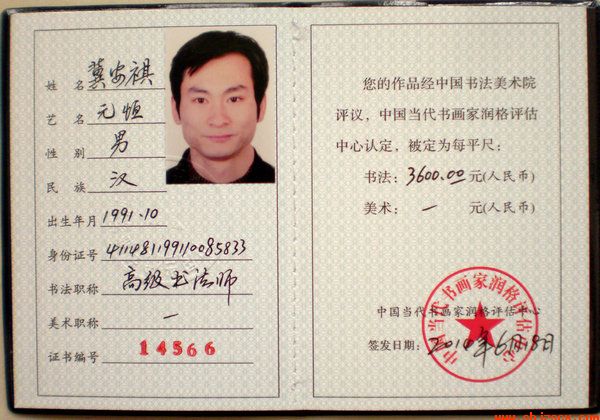 姓 名 冀安祺
艺 名 元恒
性 别 男
民 族 汉
出生年月 1991.10
身份证号 411481199110085833
书法职称 高级书法师
美术职称 一
证书编号 14566
您的作品经中国书法美术院
评议，中国当代书画家润格评估
中心认定，被定为每平尺：
书法：3600.00元(人民币)
美术：一 元(人民币)
中国当代书画家润格评估中心
中国当代书画家润格评估中心
签发日期：2014年6月18日